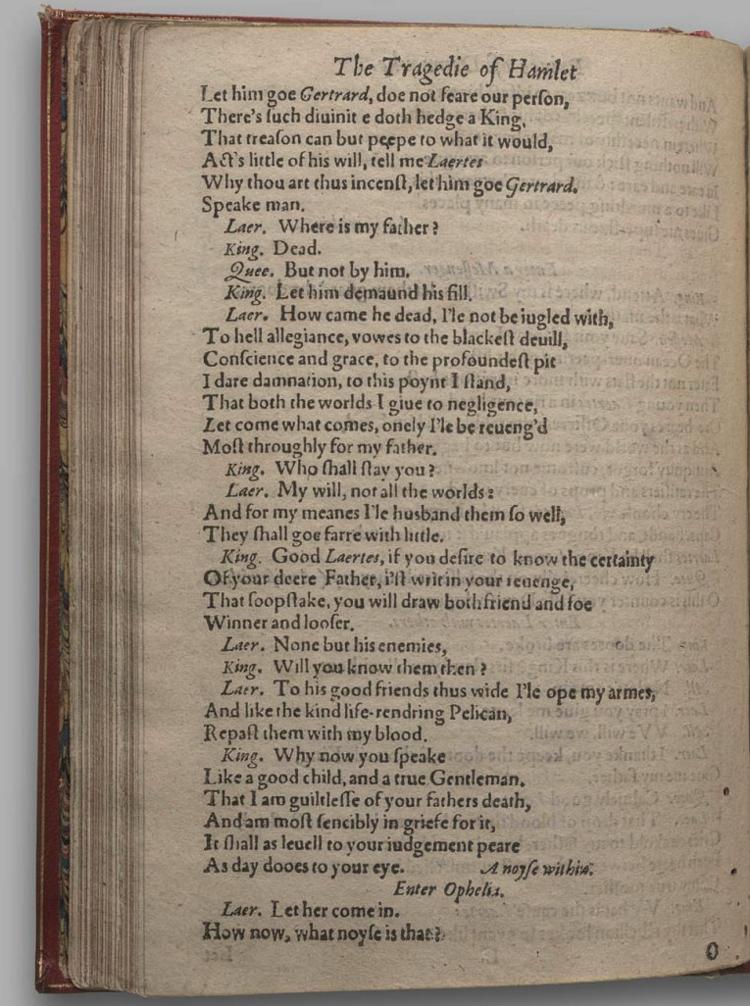 The Tragedie of Hamlet
Let him goe Gertrard, doe not feare our perſon,
There's ſuch diuinit e doth hedge a King,
That treaſon can but peepe to what it would,
Act's little of his will, tell me Laertes
Why thou art thus incenſt, let him goe Gertrard.
Speake man.
Laer. Where is my father?
King. Dead.
Quee. But not by him.
King. Let him demaund his fill.
Laer. How came he dead, I'le not be iugled with,
To hell allegiance, vowes to the blackeſt deuill,
Conſcience and grace, to the profoundeſt pit
I dare damnation, to this poynt I ſtand,
That both the worlds I giue to negligence,
Let come what comes, onely I'le be reueng'd
Moſt throughly for my father.
King. Who ſhall ſtay you?
Laer. My will, not all the worlds:
And for my meanes I'le husband them ſo well,
They ſhall goe farre with little.
King. Good Laertes, if you deſire to know the certainty
Of your deere Father, i'ſt writ in your reuenge,
That ſoopſtake, you will draw both friend and foe
Winner and looſer.
Laer. None but his enemies,
King. Will you know them then?
Laer. To his good friends thus wide I'le ope my armes,
And like the kind life-rendring Pelican,
Repaſt them with my blood.
King. Why now you ſpeake
Like a good child, and a true Gentleman.
That I am guiltleſſe of your fathers death,
And am moſt ſencibly in griefe for it,
It ſhall as leuell to your iudgement peare
As day dooes to your eye. A noyſe within.
Enter Ophelia.
Laer. Let her come in.
How now, what noyſe is that?
O